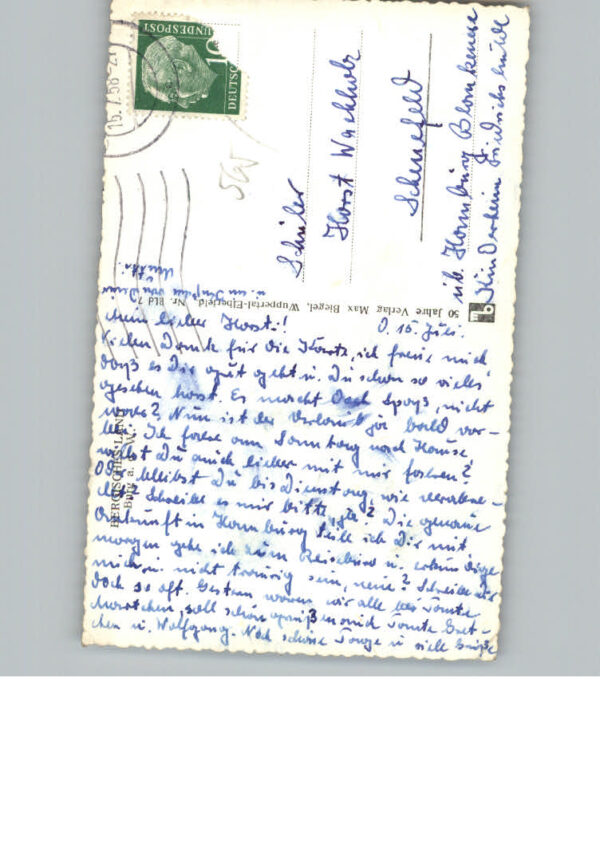 15.7.58-21
DEUTSCHE
BUNDESPOST
10
Schüler
Horst Wachholz
Schenefeld
üb. Hamburg Blankenese
Kinderheim Friedrichshulde
50 Jahre Verlag Max Biegel, Wuppertal-Elberfeld, Nr. Bld 7
BERGISCHES LAND
Burg a. d. W.
O. 15. Juli.
Mein lieber Horsti!
Vielen Dank für die Karte, ich freue mich
daß es Dir gut geht u. Du schon so vieles
gesehen hast. Es macht doch Spaß, nicht
wahr? Nun ist der Urlaub ja bald vor-
bei. Ich fahre am Sonntag nach Hause,
willst Du auch lieber mit mir fahren?
Od. bleibst Du bis Dienstag, wie
Schreibe es mir bitte, ja? Die genaue
Ankunft in Hamburg teile ich Dir mit,
morgen gehe ich zum Reisebüro u. erkundige
mich. u. nicht traurig sein, Schreibe
doch so oft. Gestern waren wir alle bei Tante
Martchen, soll schön grüßen und Tante Gret-
chen u. Wolfgang. Noch schöne Tage u. viele Grüße
u. ein von Deiner
Mutti.